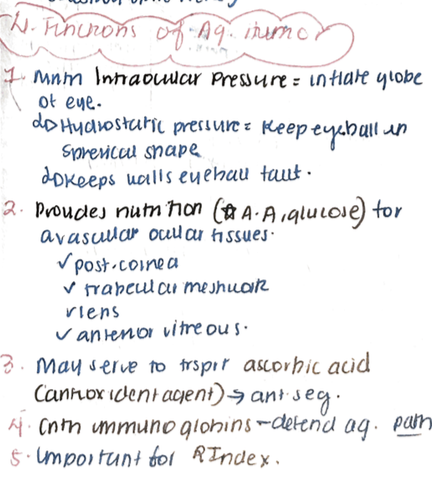 N. Functions of Aq. humor
1. Mntn Intraocular Pressure = intiate globe
of eye.
Hydrostatic pressure = Keep eyeball in
Spherical shape
Keeps walls eyeball taut.
2. Provides nutrition (A.A, glucose) for
avascular ocular tissues.
✓ post. cornea
✓ trabecular meshwork
✓ lens
✓ anterior vitreous.
3. May serve to trsprt ascorbic acid
(antioxident agent) → ant seg.
4. Cntn immunoglobins - defend ag. path
5. Important for RIndex.